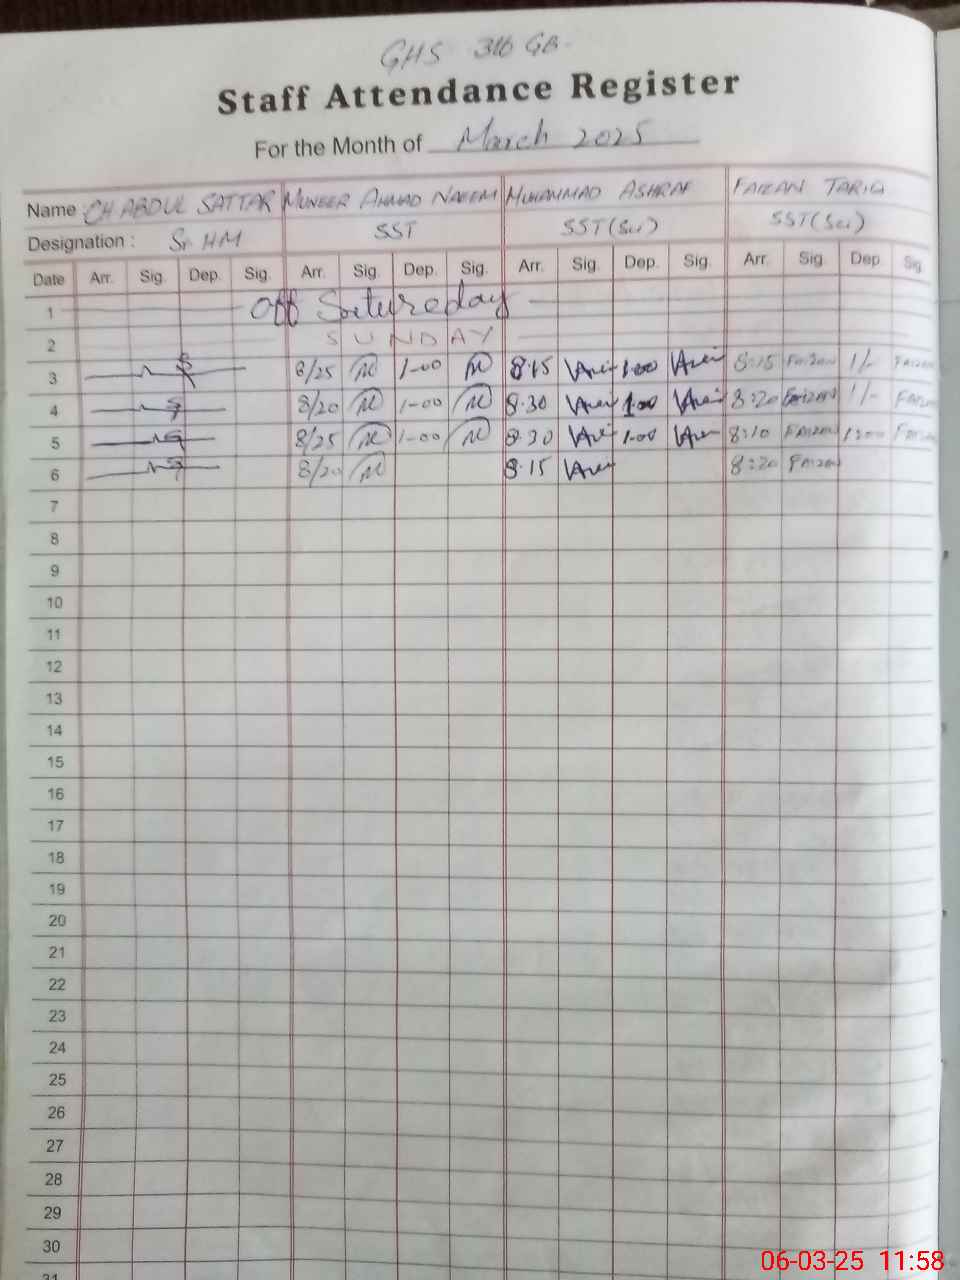 GHS 316 GB.
Staff Attendance Register
For the Month of March 2025
Name CH ABDUL SATTAR MUNEER AHMAD NAEEM MUHAMMAD ASHRAF FAIZAN TARIQ
Designation : Sr HM SST SST (Sci) SST (Sci)
Date Arr. Sig. Dep. Sig. Arr. Sig. Dep. Sig. Arr. Sig. Dep. Sig. Arr. Sig. Dep Sig.
1 Off Satureday
2 SUNDAY
3 8/25 1-00 8.15 1.00 8:15 FAIZAN 1/- FAIZAN
4 8/20 1-00 8.30 1.00 8:20 FAIZAN 1/- FAIZAN
5 8/25 1-00 8.30 1.00 8:10 FAIZAN 1:00 FAIZAN
6 8/20 8.15 8:20 FAIZAN
7
8
9
10
11
12
13
14
15
16
17
18
19
20
21
22
23
24
25
26
27
28
29
30
31
06-03-25 11:58